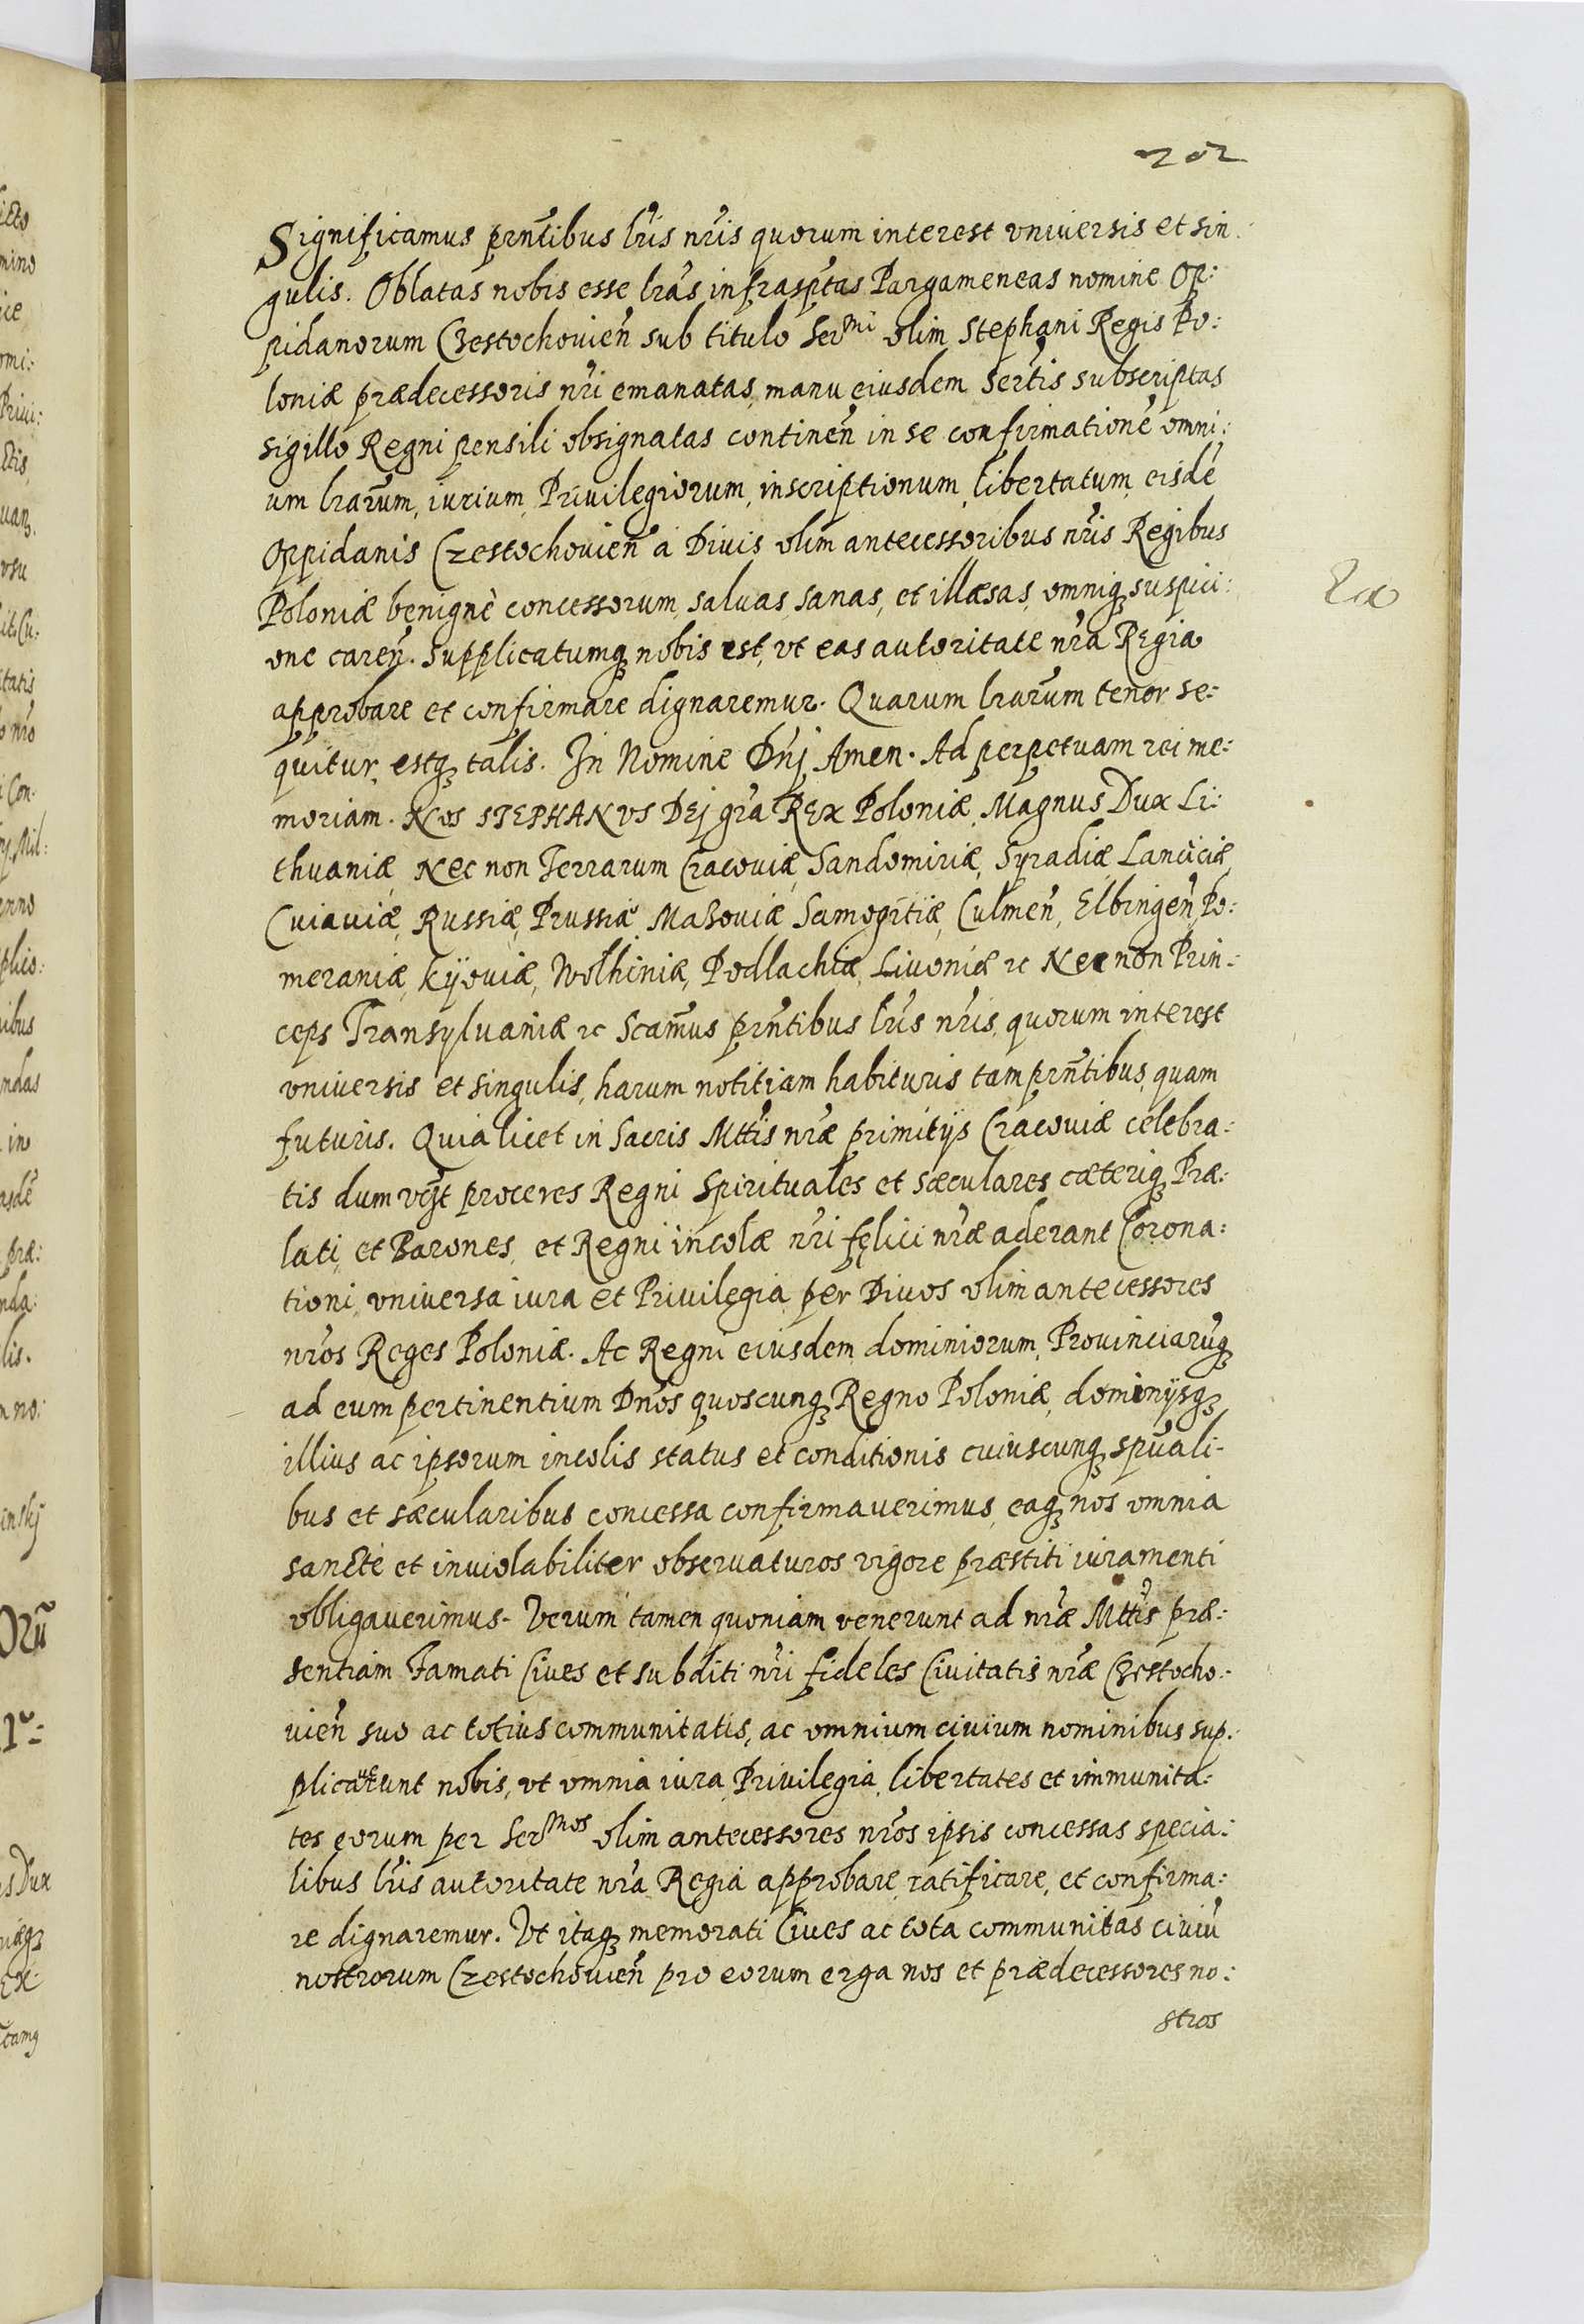 202
Significamus prñtibus lris nris quorum interest vniuersis et sin:
gulis. Oblatas nobis esse lras infrasptas Pargameneas nomine Op:
pidanorum Czestochouieñ sub titulo Ser^mi olim Stephani Regis Po:
loniæ prædecessoris nri emanatas, manu eiusdem Sertis subscriptas
sigillo Regni pensili obsignatas contineñ in se confirmationē omni:
um lrarum, iurium, Priuilegiorum, inscriptionum, libertatum, eisdē
Oppidanis Czestochouieñ a Diuis olim antecessoribus nris Regibus
Poloniæ benignè concessorum, saluas, sanas, et illæsas, omniq3 suspici:
one careñ. Supplicatumq3 nobis est, vt eas autoritate nra Regia
approbare et confirmare dignaremur. Quarum lrarum tenor se:
quitur, estq3 talis. In Nomine Dnj Amen. Ad perpetuam rei me:
moriam. Nos STEPHANVS DEj gra REX Poloniæ, Magnus Dux Li:
thuaniæ Nec non Terrarum Cracouiæ, Sandomiriæ, Syradiæ Lanciciæ,
Cuiauiæ, Russiæ, Prussiæ, Mazouiæ Samogitiæ, Culmeñ, Elbingeñ, Po:
meraniæ, Kÿouiæ, Wolhiniæ, Podlachiæ, Liuoniæ rc Nec non Prin:
ceps Transyluaniæ rc Scamus prñtibus lris nris, quorum interest
vniuersis et singulis, harum notitiam habituris tam prñtibus, quam
futuris. Quia licet in Sacris Mttis nræ primitÿs Cracouiæ celebra:
tis dum proceres Regni Spirituales et sæculares cæteriq3 Præ:
lati, et Barones, et Regni incolæ nri fęlici nræ aderant Corona:
tioni, vniuersa iura et Priuilegia per Diuos olim antecessores
nros Reges Poloniæ. Ac Regni eiusdem dominiorum, Prouinciarūq3
ad eum pertinentium Dnos quoscunq3 Regno Poloniæ, dominÿsq3
illius ac ipsorum incolis status et conditionis cuiuscunq3 spuali-
bus et sæcularibus concessa confirmauerimus, eaq3 nos omnia
sanctè et inuiolabiliter obseruaturos vigore præstiti iuramenti
obligauerimus. Verum tamen quoniam venerunt ad nræ Mttis præ:
sentiam Famati Ciues et subditi nri fideles Ciuitatis nræ Czestocho:
uieñ suo ac totius communitatis, ac omnium ciuium nominibus sup:
plicauerunt nobis, vt omnia iura, Priuilegia, libertates et immunita:
tes eorum per Ser^mos olim antecessores nros ipsis concessas specia:
libus lris autoritate nra Regia approbare, ratificare, et confirma:
re dignaremur. Vt itaq3 memorati Ciues ac tota communitas ciuiū
nostrorum Czestochouieñ pro eorum erga nos et prædecessores no:
stros